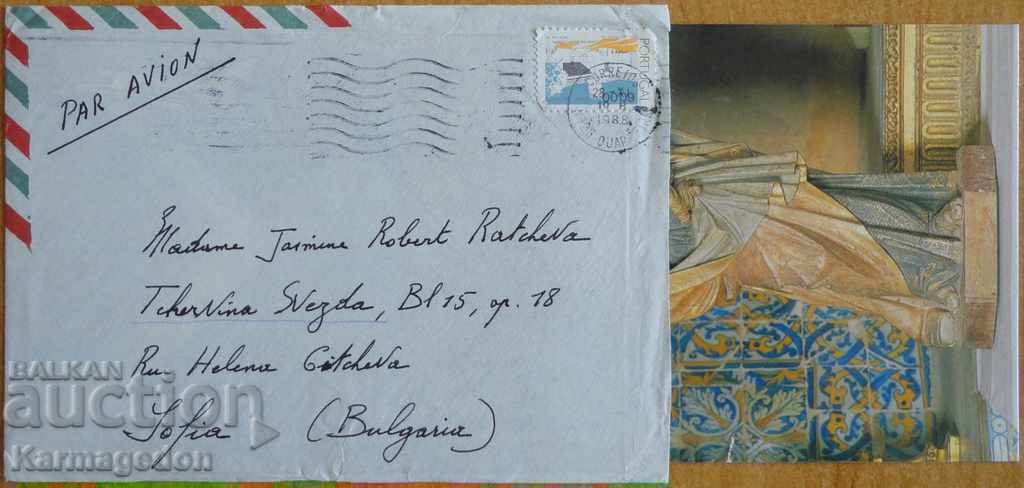 PAR AVION
PORTUGAL
CORREIOS
1988
Madame Jasmine Robert Ratcheva
TcherVina SVezda, Bl 15, ap. 18
Ru. Helena Gitcheva
Sofia (Bulgaria)
BALKAN
auction
Karmagedon